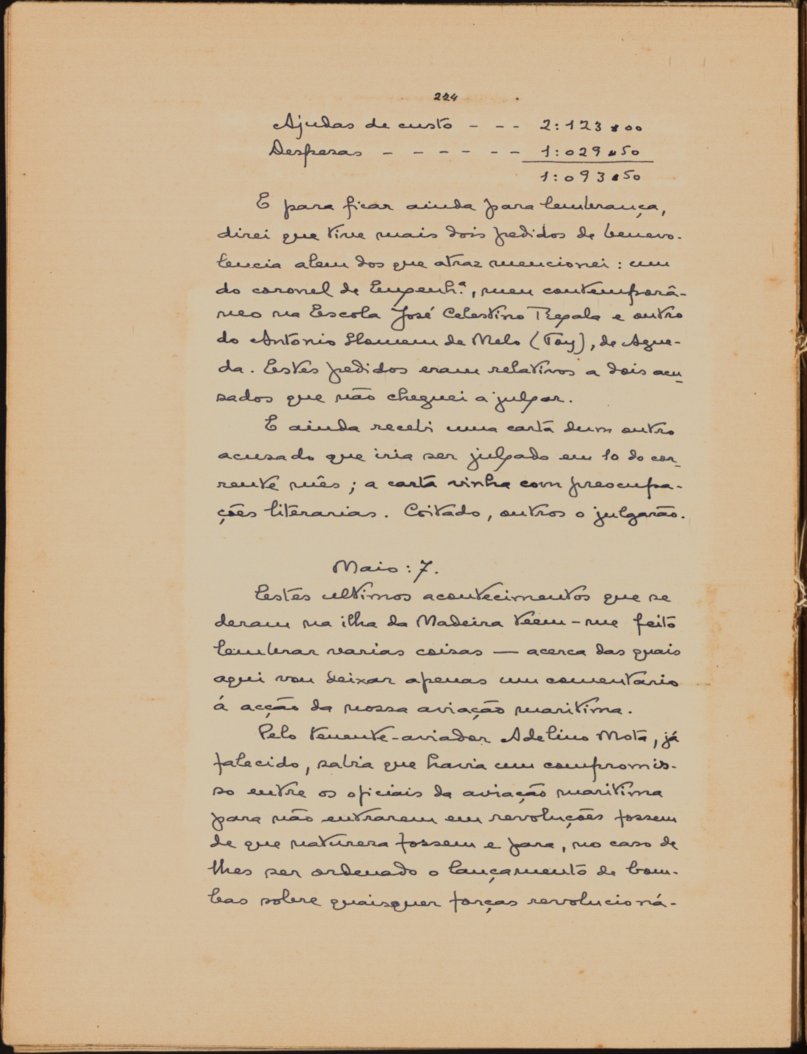 224
Ajudas de custo - - - 2:123$00
Despesas - - - - - - 1:029$50
1:093$50
E para ficar ainda para lembrança,
direi que tive mais dois pedidos de benevo-
lencia alem dos que atraz mencionei: um
do coronel de Engenh.ª, meu contemporâ-
neo na Escola José Celestino Regala e outro
do Antonio Homem de Melo (Toy), de Ague-
da. Estes pedidos eram relativos a dois acu-
sados que não cheguei a julgar.
E ainda recebi uma carta dum outro
acusado que iria ser julgado em 10 do cor-
rente mês; a carta vinha com preocupa-
ções literarias. Coitado, outros o julgarão.
Maio: 7.
Estes ultimos acontecimentos que se
deram na ilha da Madeira teem-me feito
lembrar varias coisas — acerca das quais
aqui vou deixar apenas um comentario
á acção da nossa aviação maritima.
Pelo tenente-aviador Adelino Mota, já
falecido, sabia que havia um compromis-
so entre os oficiais da aviação maritima
para não entrarem em revoluções fossem
de que natureza fossem e para, no caso de
lhes ser ordenado o lançamento de bom-
bas sobre quaisquer forças revolucioná-